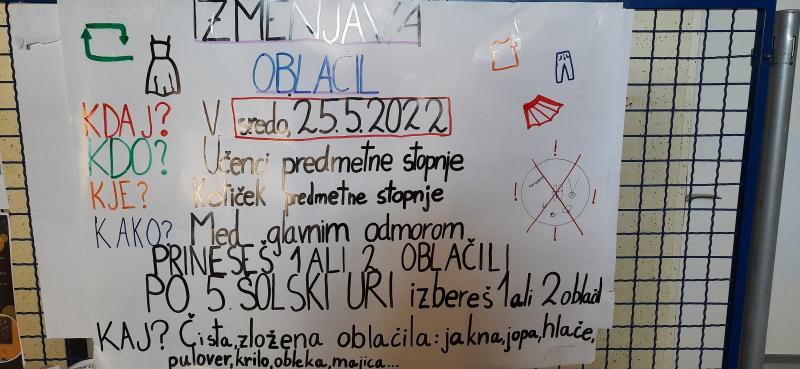 IZMENJAVA
OBLAČIL
KDAJ? V sredo, 25.5.2022
KDO? Učenci predmetne stopnje
KJE? Kotiček predmetne stopnje
KAKO? Med glavnim odmorom
PRINESEŠ 1 ALI 2 OBLAČILI
PO 5. ŠOLSKI URI izbereš 1 ali 2 oblačil
KAJ? Čista, zložena oblačila: jakna, jopa, hlače,
pulover, krilo, obleka, majica...